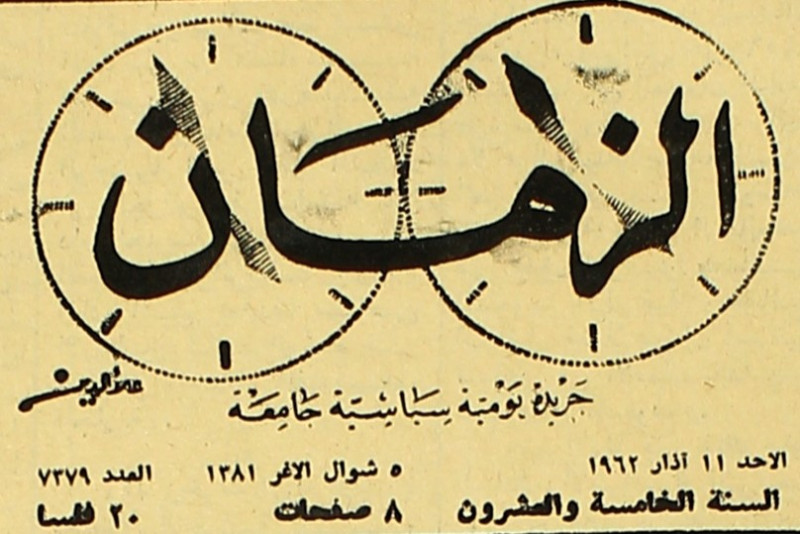 الزمان
علاء الدين
جريدة يومية سياسية جامعة
الاحد ١١ آذار ١٩٦٢ ٥ شوال الاغر ١٣٨١ العدد ٧٣٧٩
السنة الخامسة والعشرون ٨ صفحات ٢٠ فلسا